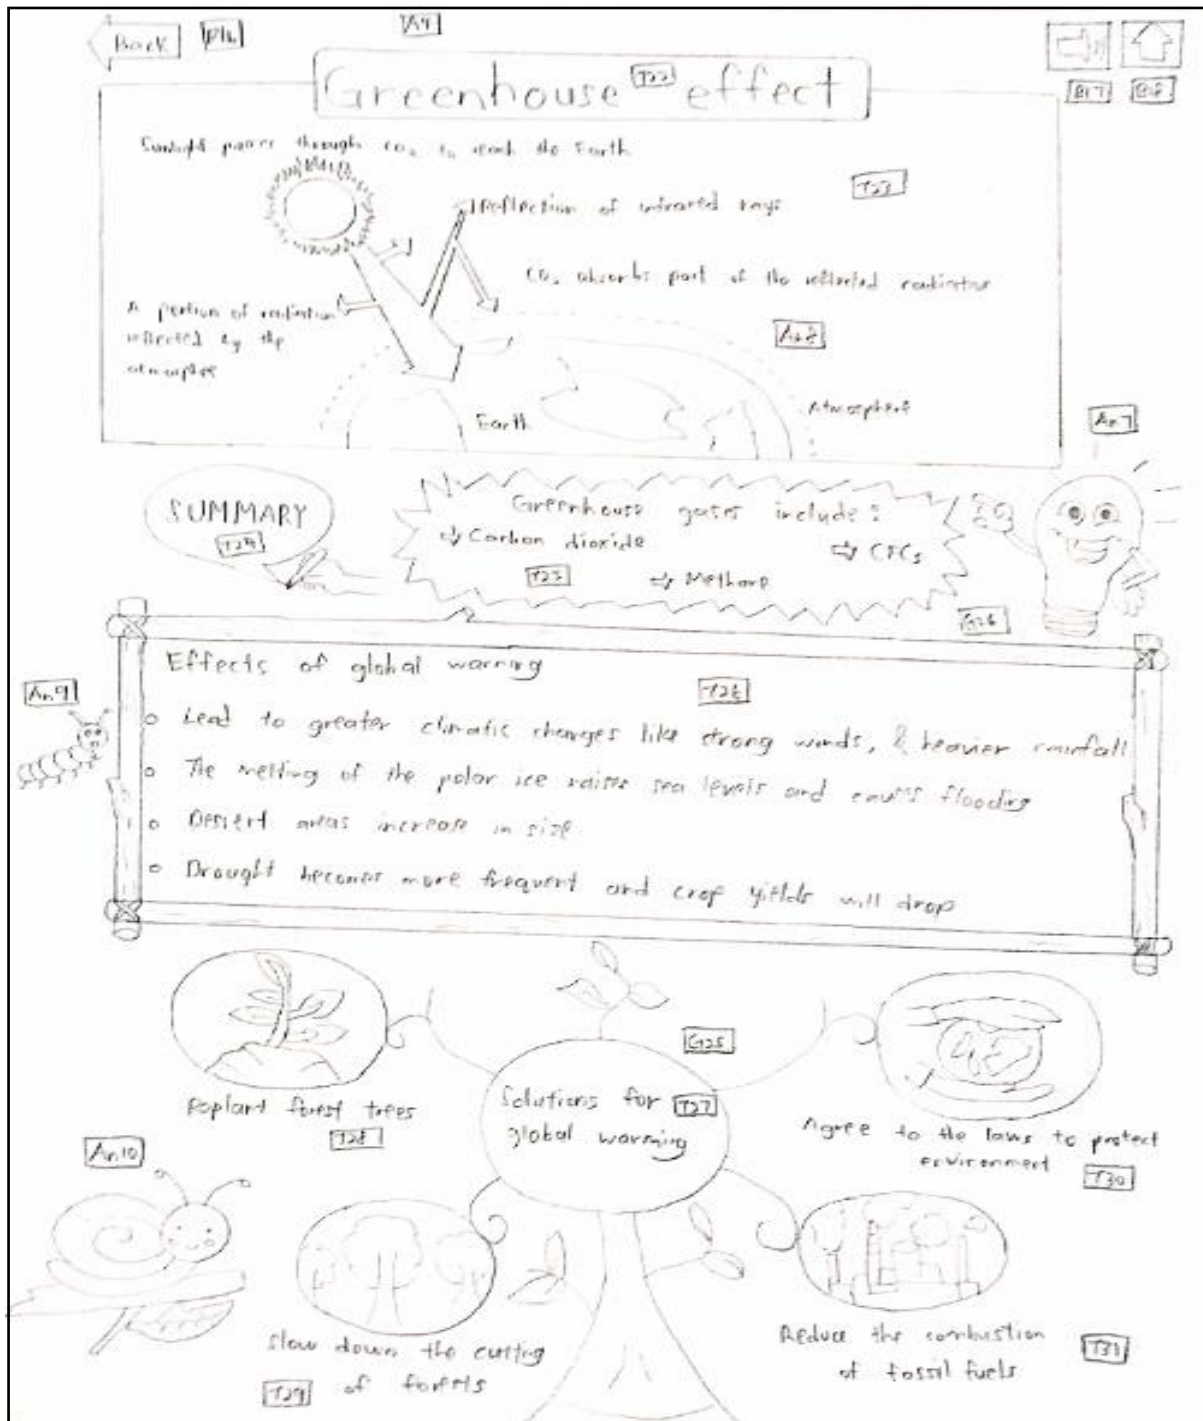 Back
A4
Greenhouse effect
T22
B17
Sunlight passes through CO₂ to reach the Earth
T23
Reflection of infrared rays
CO₂ absorbs part of the reflected radiation
A portion of radiation
reflected by the
Earth
Atmosphere
An7
SUMMARY
T24
Greenhouse gases include:
⇨ Carbon dioxide
⇨ CFCs
T25
⇨ Methane
G26
Effects of global warming
T26
An9
o Lead to greater climatic changes like strong winds, & heavier rainfall
o The melting of the polar ice raises sea levels and causes flooding
o Desert areas increase in size
o Drought becomes more frequent and crop yields will drop
G25
Solutions for
T27
global warming
Replant forest trees
T28
Agree to the laws to protect
environment
T30
An10
Slow down the cutting
of forests
T29
Reduce the combustion
of fossil fuels
T31